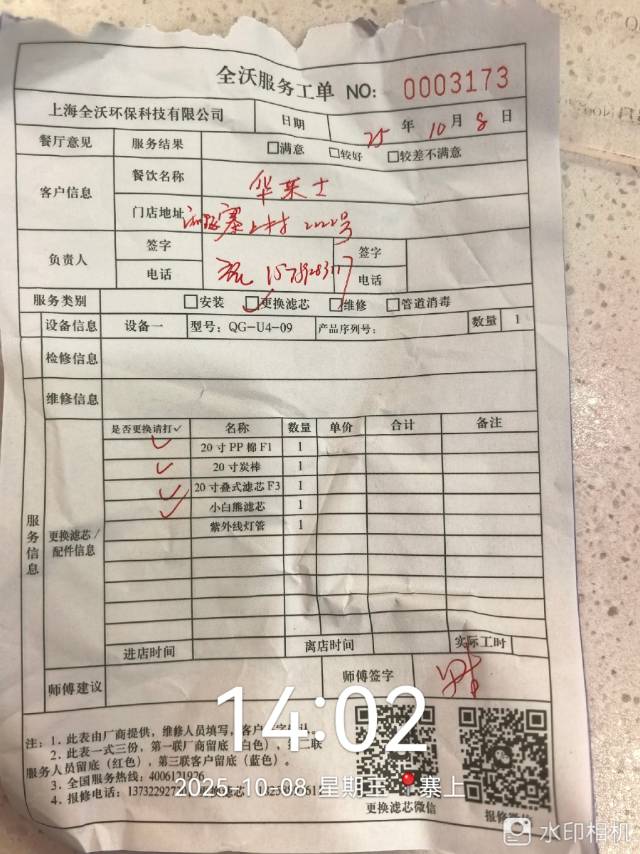 全沃服务工单 NO: 0003173
上海全沃环保科技有限公司 日期 25 年 10 月 8 日
餐厅意见 服务结果 □满意 □较好 □较差不满意
客户信息 餐饮名称 华莱士
门店地址 塞上 2222号
负责人 签字 签字
电话 电话
服务类别 □安装 □更换滤芯 □维修 □管道消毒
设备信息 设备一 型号: QG-U4-09 产品序列号: 数量 1
检修信息
维修信息
服务信息
更换滤芯/配件信息
是否更换请打✓ 名称 数量 单价 合计 备注
✓ 20寸PP棉F1 1
✓ 20寸炭棒 1
✓ 20寸叠式滤芯F3 1
✓ 小白熊滤芯 1
紫外线灯管 1
进店时间 离店时间 实际工时
师傅建议 师傅签字
14:02
注: 1. 此表由厂商提供,维修人员填写,客户
2. 此表一式三份,第一联厂商留底(白色),联
服务人员留底(红色),第三联客户留底(蓝色)。
3. 全国服务热线: 4006121926
4. 报修电话:
2025-10-08 星期三 塞上
更换滤芯微信 报修
水印相机